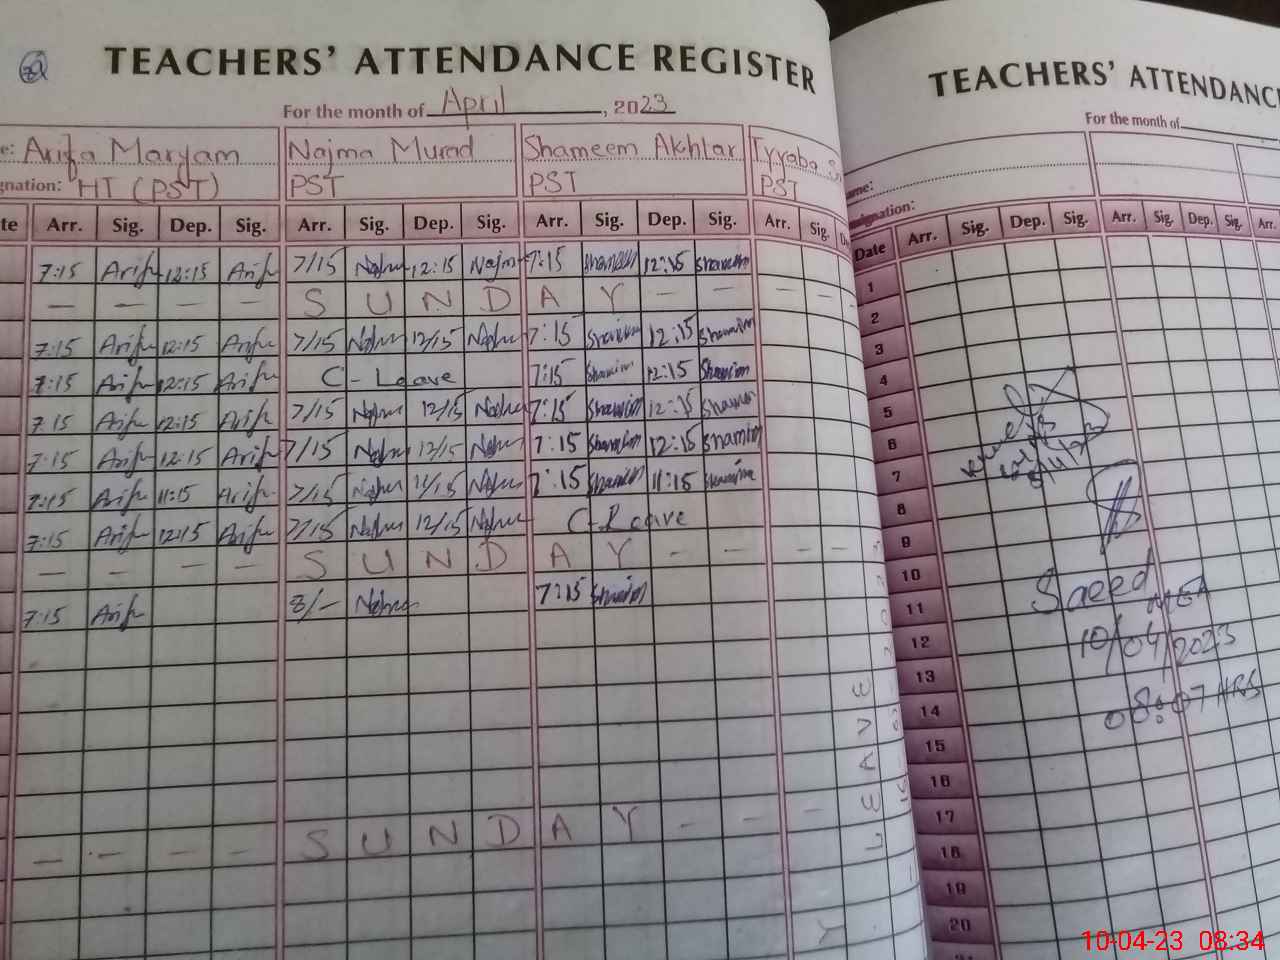 TEACHERS' ATTENDANCE REGISTER
For the month of April, 2023
e: Arifa Maryam Najma Murad Shameem Akhtar Tyyaba
gnation: HT (PST) PST PST PST
te Arr. Sig. Dep. Sig. Arr. Sig. Dep. Sig. Arr. Sig. Dep. Sig. Arr. Sig. De
7:15 Arifa 12:15 Arifa 7/15 Najma 12:15 Najma 7:15 Shameem 12:15 Shameem
— — — — S U N D A Y — — — —
7:15 Arifa 12:15 Arifa 7/15 Najma 12/15 Najma 7:15 Shamim 12:15 Shamim
7:15 Arifa 12:15 Arifa C - Leave 7:15 Shamim 12:15 Shamim
7:15 Arifa 12:15 Arifa 7/15 Najma 12/15 Najma 7:15 Shamim 12:15 Shamim
7:15 Arifa 12:15 Arifa 7/15 Najma 12/15 Najma 7:15 Shamim 12:15 Shamim
7:15 Arifa 11:15 Arifa 7/15 Najma 11/15 Najma 7:15 Shamim 11:15 Shamim
7:15 Arifa 12:15 Arifa 7/15 Najma 12/15 Najma C-Leave
— — — — S U N D A Y - - - -
7:15 Arifa 8/- Najma 7:15 Shamim
— — — — S U N D A Y - - -
L E A V E
TEACHERS' ATTENDANC
For the month of
ame:
esignation:
Date Arr. Sig. Dep. Sig. Arr. Sig. Dep. Sig. Arr.
1
2
3
4
5
6
7
8
9
10
11
12
13
14
15
16
17
18
19
20
Saeed
MEA
10/04/2023
08:07 HRS
10-04-23 08:34